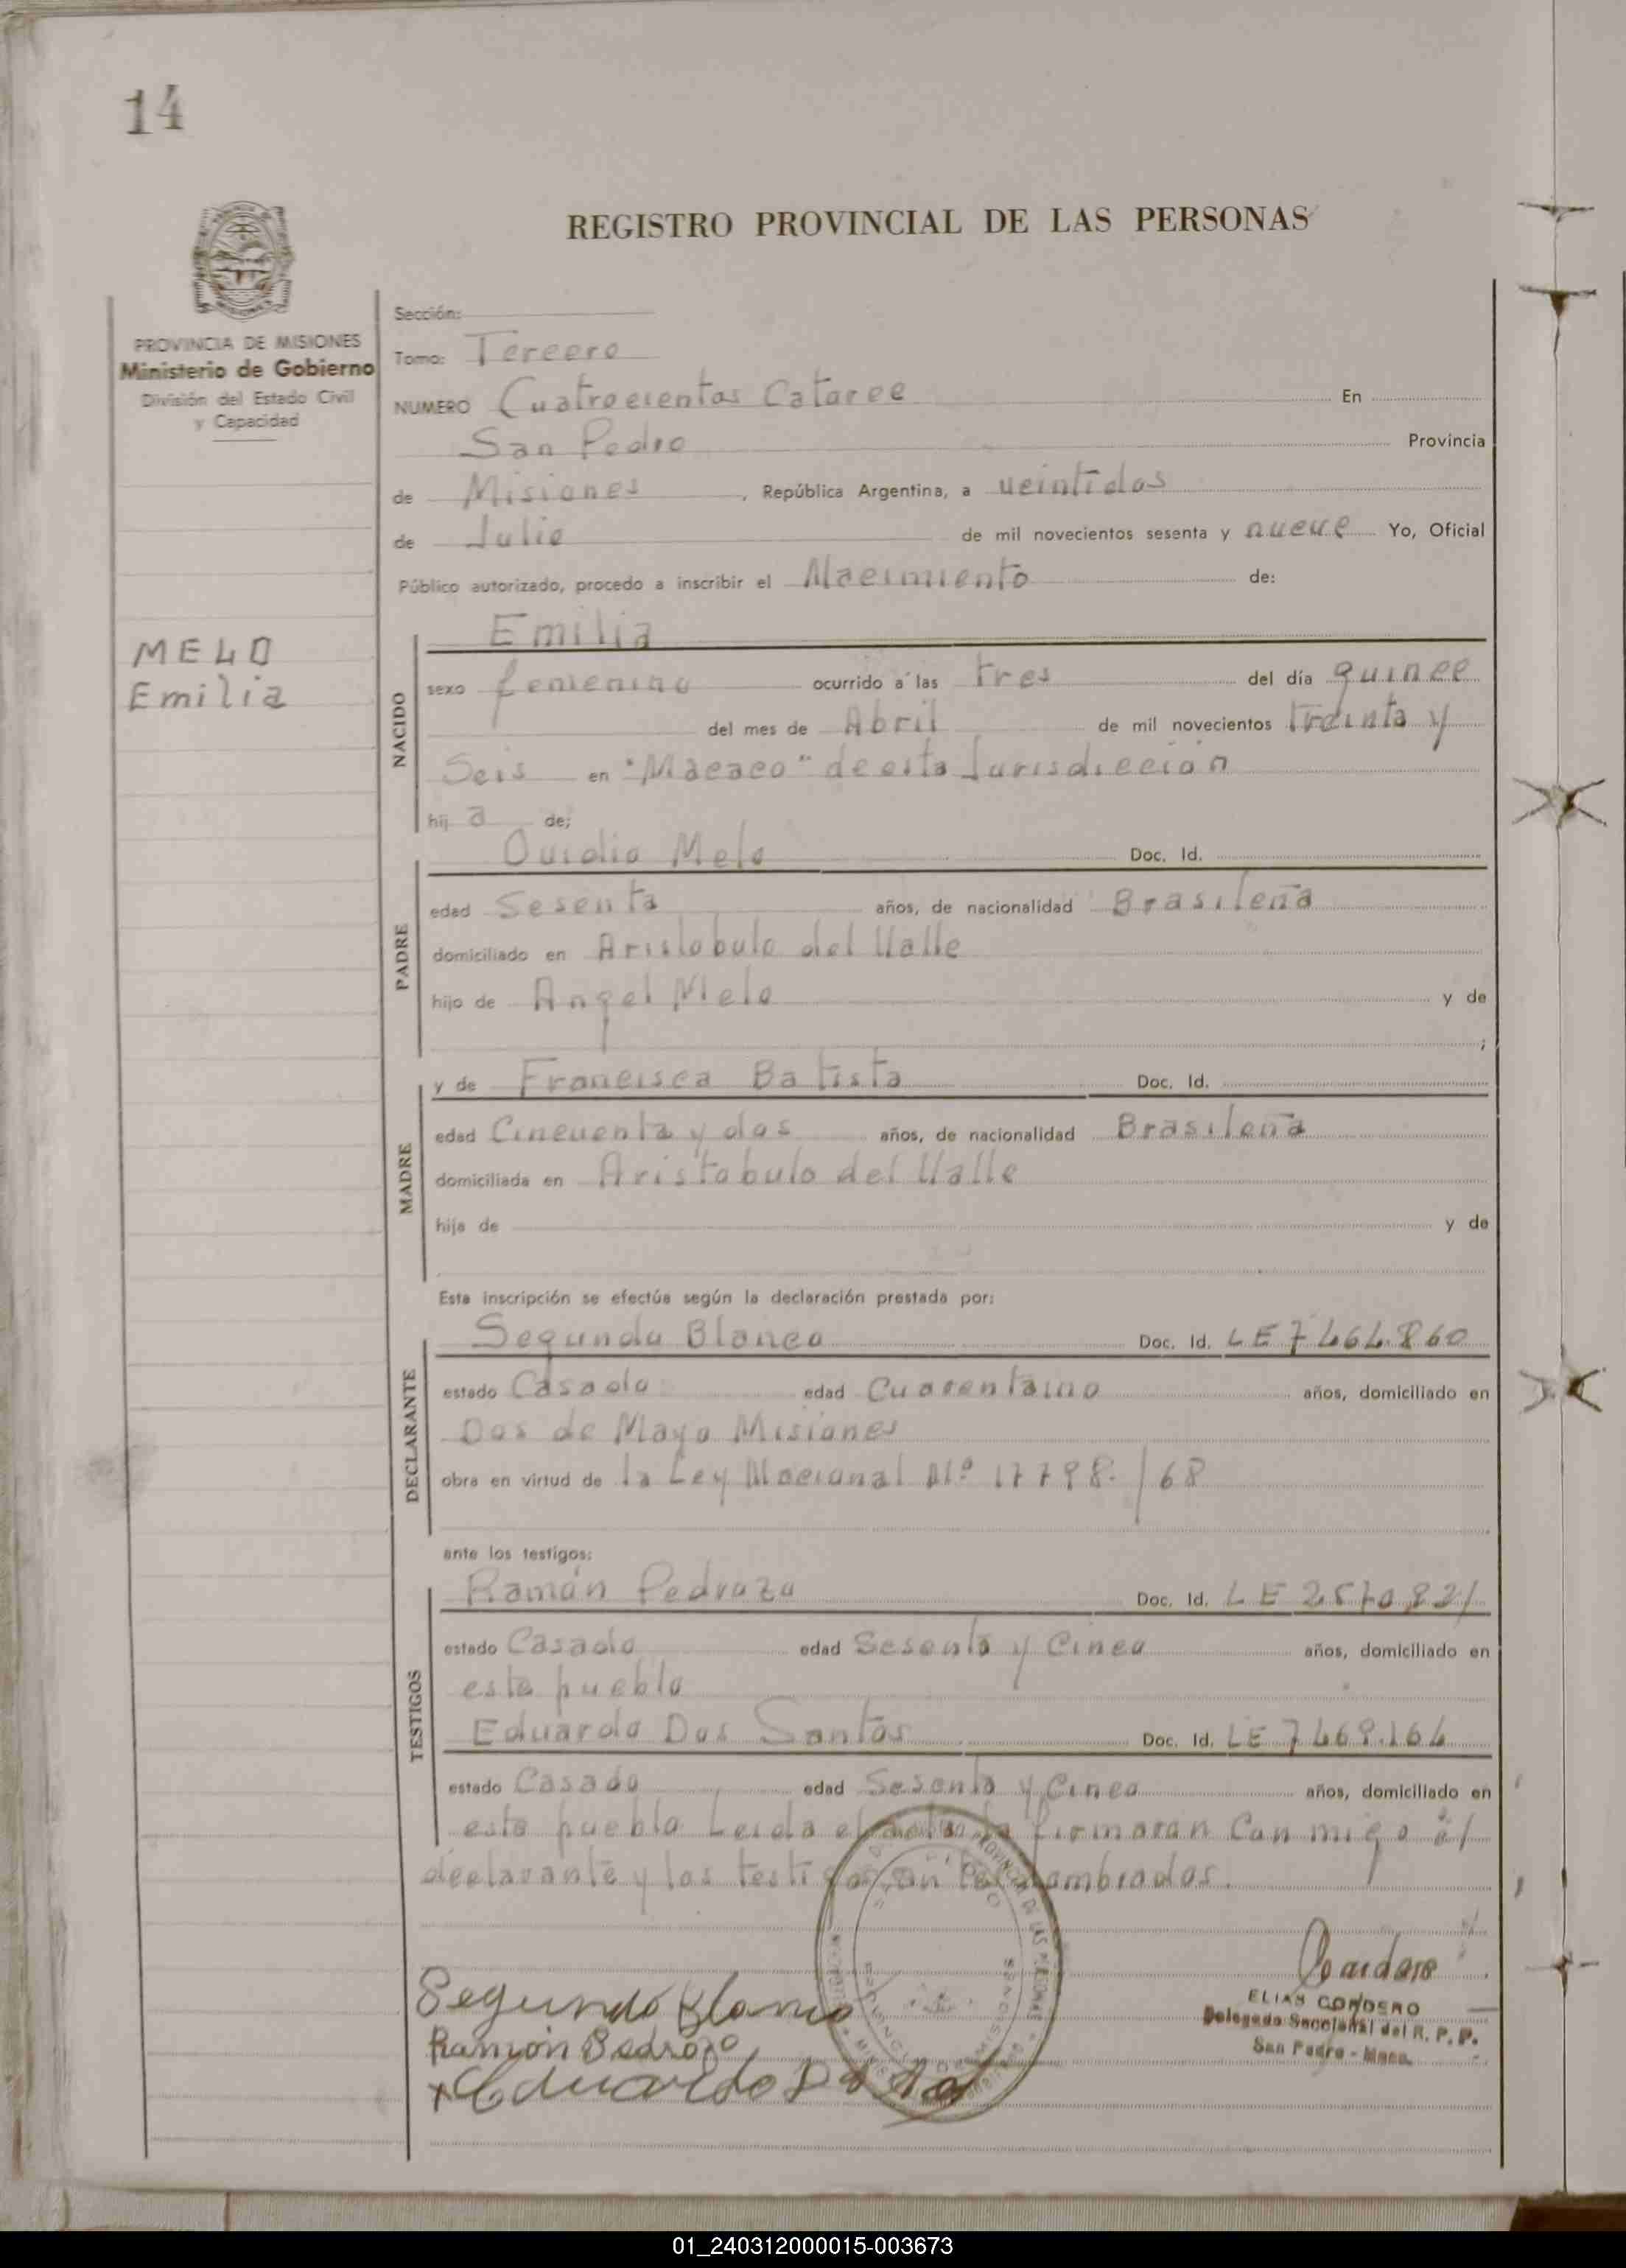 14
REGISTRO PROVINCIAL DE LAS PERSONAS
PROVINCIA DE MISIONES
Ministerio de Gobierno
División del Estado Civil
y Capacidad
MELO
Emilia
Sección:
Tomo: Tercero
NUMERO Cuatrocientos Catorce En
San Pedro Provincia
de Misiones, República Argentina, a veintidos
de Julio de mil novecientos sesenta y nueve Yo, Oficial
Público autorizado, procedo a inscribir el Nacimiento de:
NACIDO
Emilia
sexo femenino ocurrido a las tres del día quince
del mes de Abril de mil novecientos treinta y
Seis en "Macaco" de esta Jurisdicción
hij a de;
PADRE
Ovidio Melo Doc. Id.
edad Sesenta años, de nacionalidad Brasileña
domiciliado en Aristobulo del Valle
hijo de Angel Melo y de
;
MADRE
y de Francisca Batista Doc. Id.
edad Cincuenta y dos años, de nacionalidad Brasileña
domiciliada en Aristobulo del Valle
hija de y de
Esta inscripción se efectúa según la declaración prestada por:
DECLARANTE
Segundo Blanco Doc. Id. LE 7464.860
estado Casado edad Cuarentaino años, domiciliado en
Dos de Mayo Misiones
obra en virtud de la Ley Nacional Nº 17798./68
ante los testigos:
TESTIGOS
Ramón Pedrozo Doc. Id. LE 2570821
estado Casado edad Sesenta y Cinco años, domiciliado en
este pueblo
Eduardo Dos Santos Doc. Id. LE 7469.164
estado Casado edad Sesenta y Cinco años, domiciliado en
este pueblo Leida el acta la firmaran Con migo el
declarante y los testigos antes nombrados.
Segundo Blanco
Ramón Pedrozo
Eduardo
Cordero
ELIAS CORDERO
Delegado Seccional del R. P. P.
San Pedro - Mnes.
01_240312000015-003673